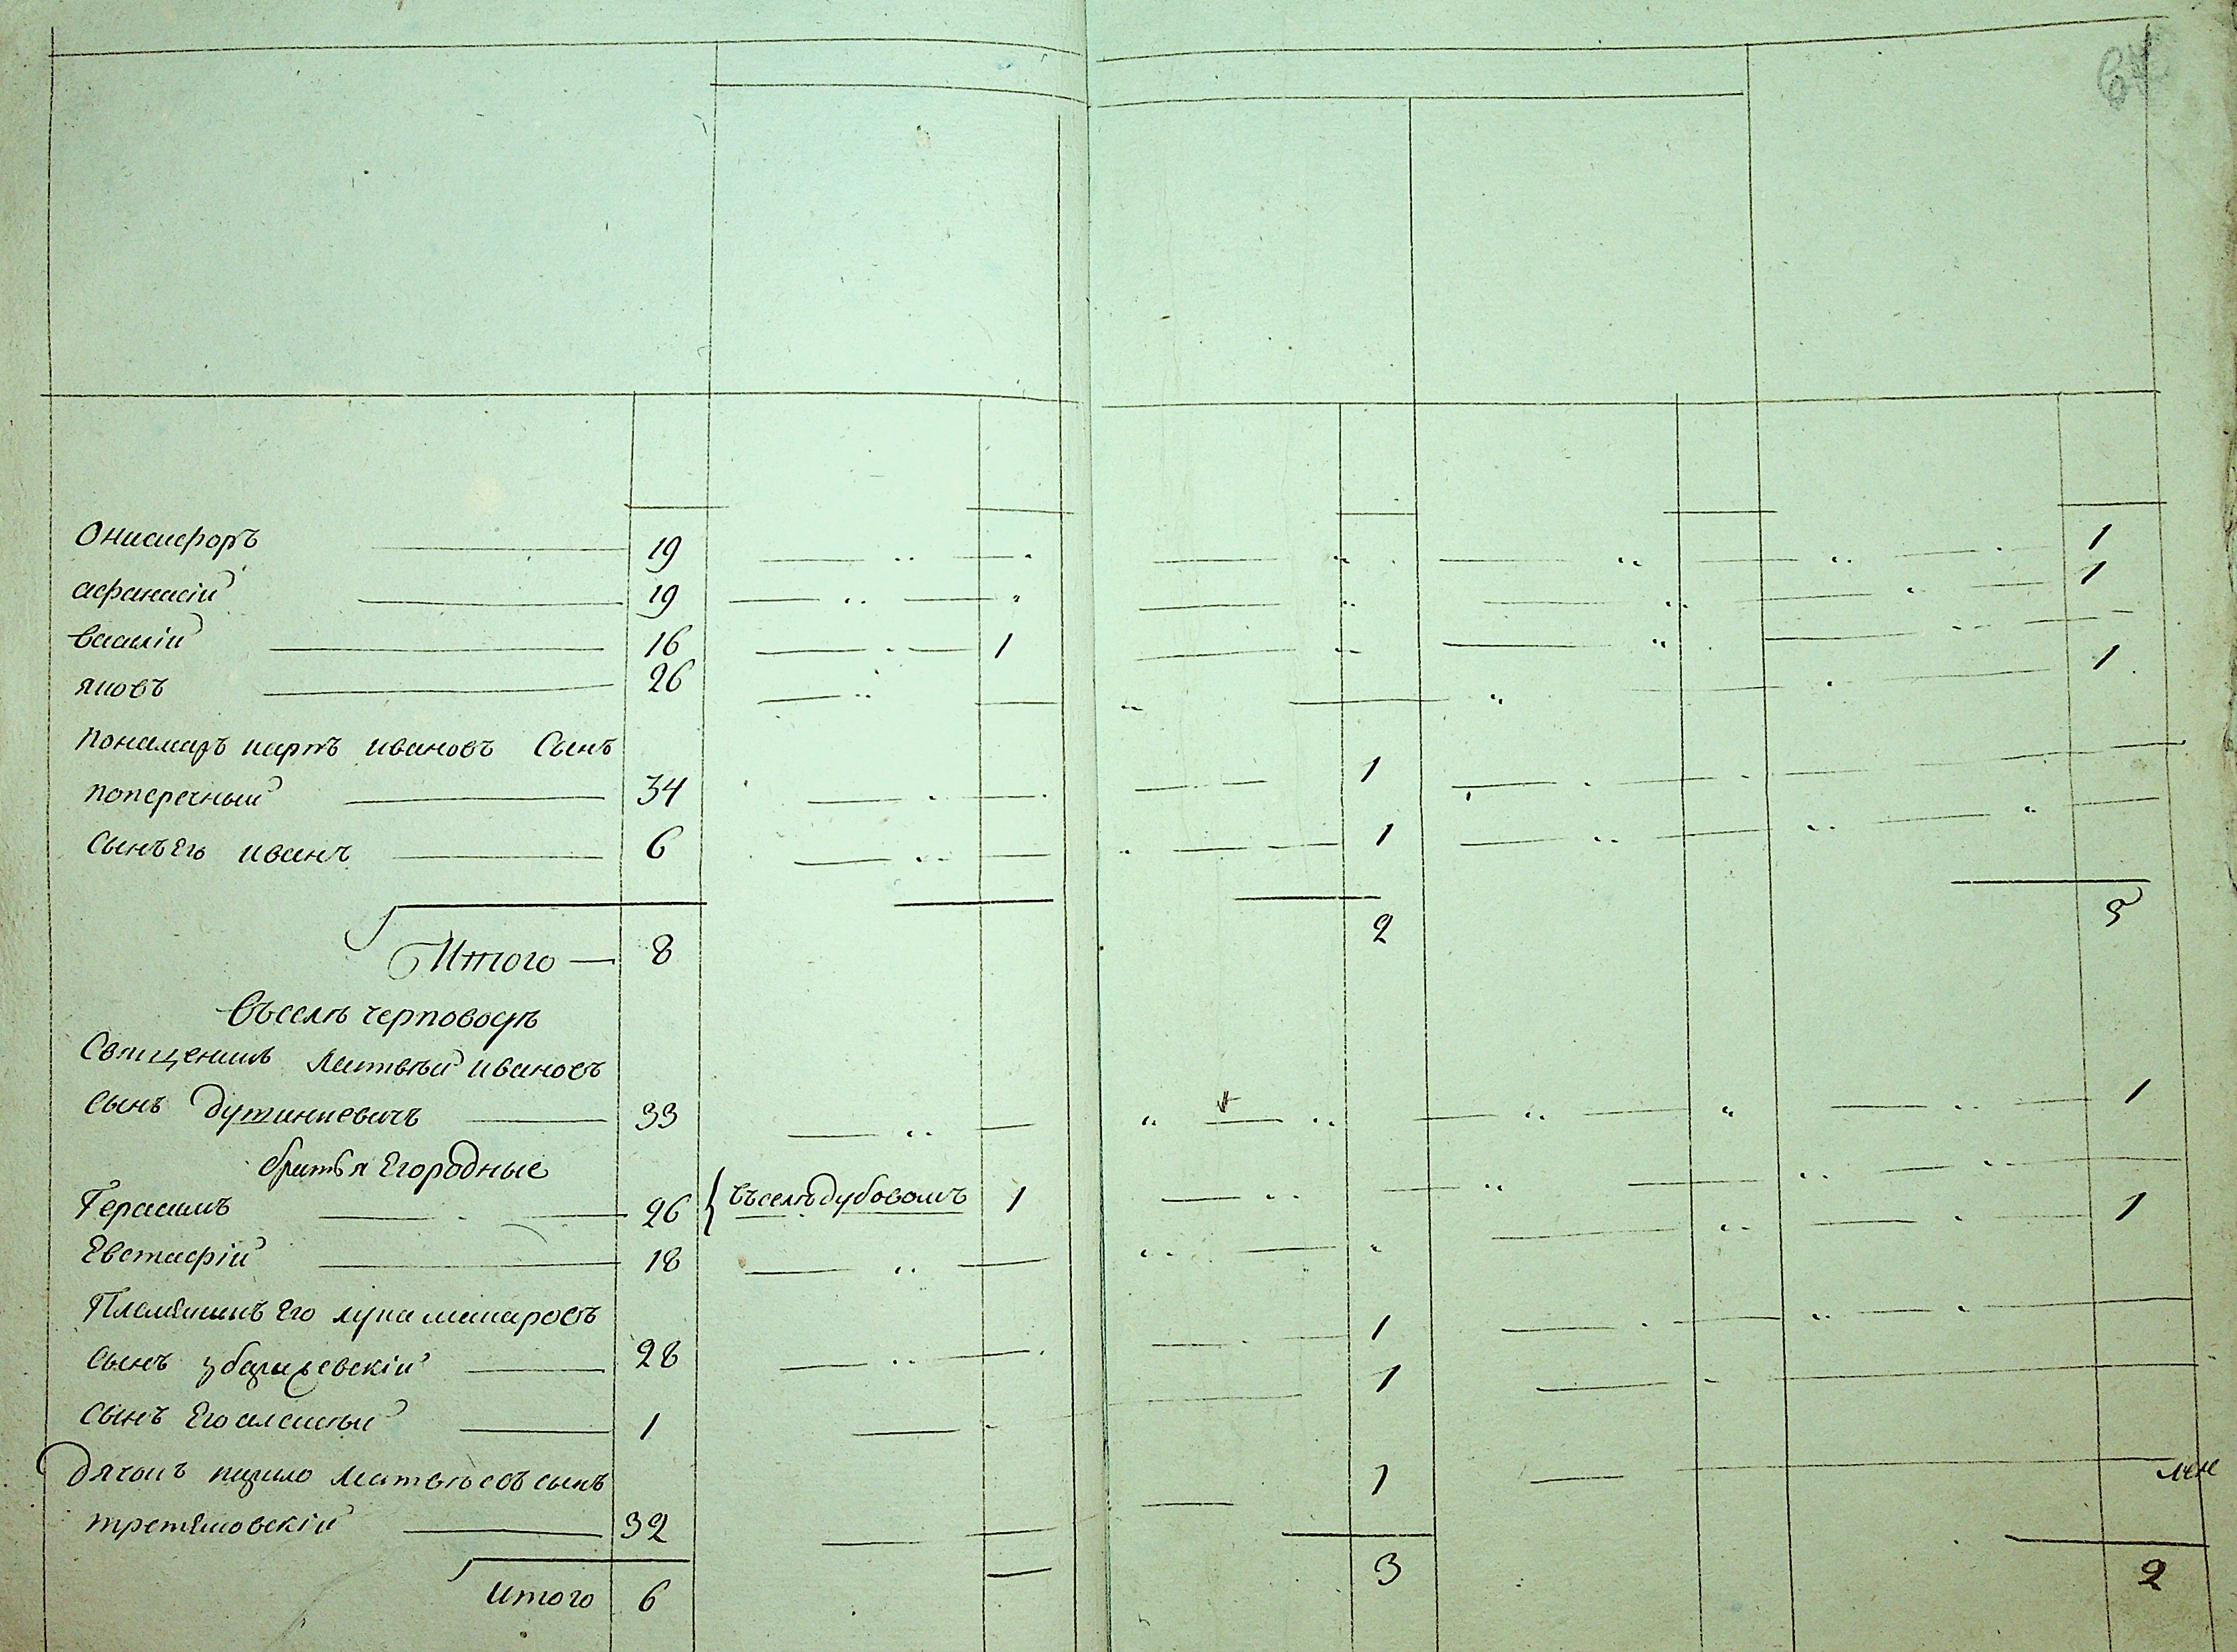 Онисифоръ 19 1
афанасій 19 1
василій 16 1
яковъ 26 1
Пономаръ карпъ ивановъ Сынъ
поперечный 34 1
Сынъ Его иванъ 6 1
Итого 8 2 5
Въселѣ черповодѣ
Священикъ Матвѣй ивановъ
Сынъ Дутинкевичъ 33 1
братья Егородные
Герасимъ 26 въселѣ дубовомъ 1
Евстафій 18 1
Племяникъ Его лука макаровъ
Сынъ 28 1
Сынъ Его алексѣй 1 1
Дячокъ кирило Матвѣевъ сынъ
32 1
Итого 6 3 2